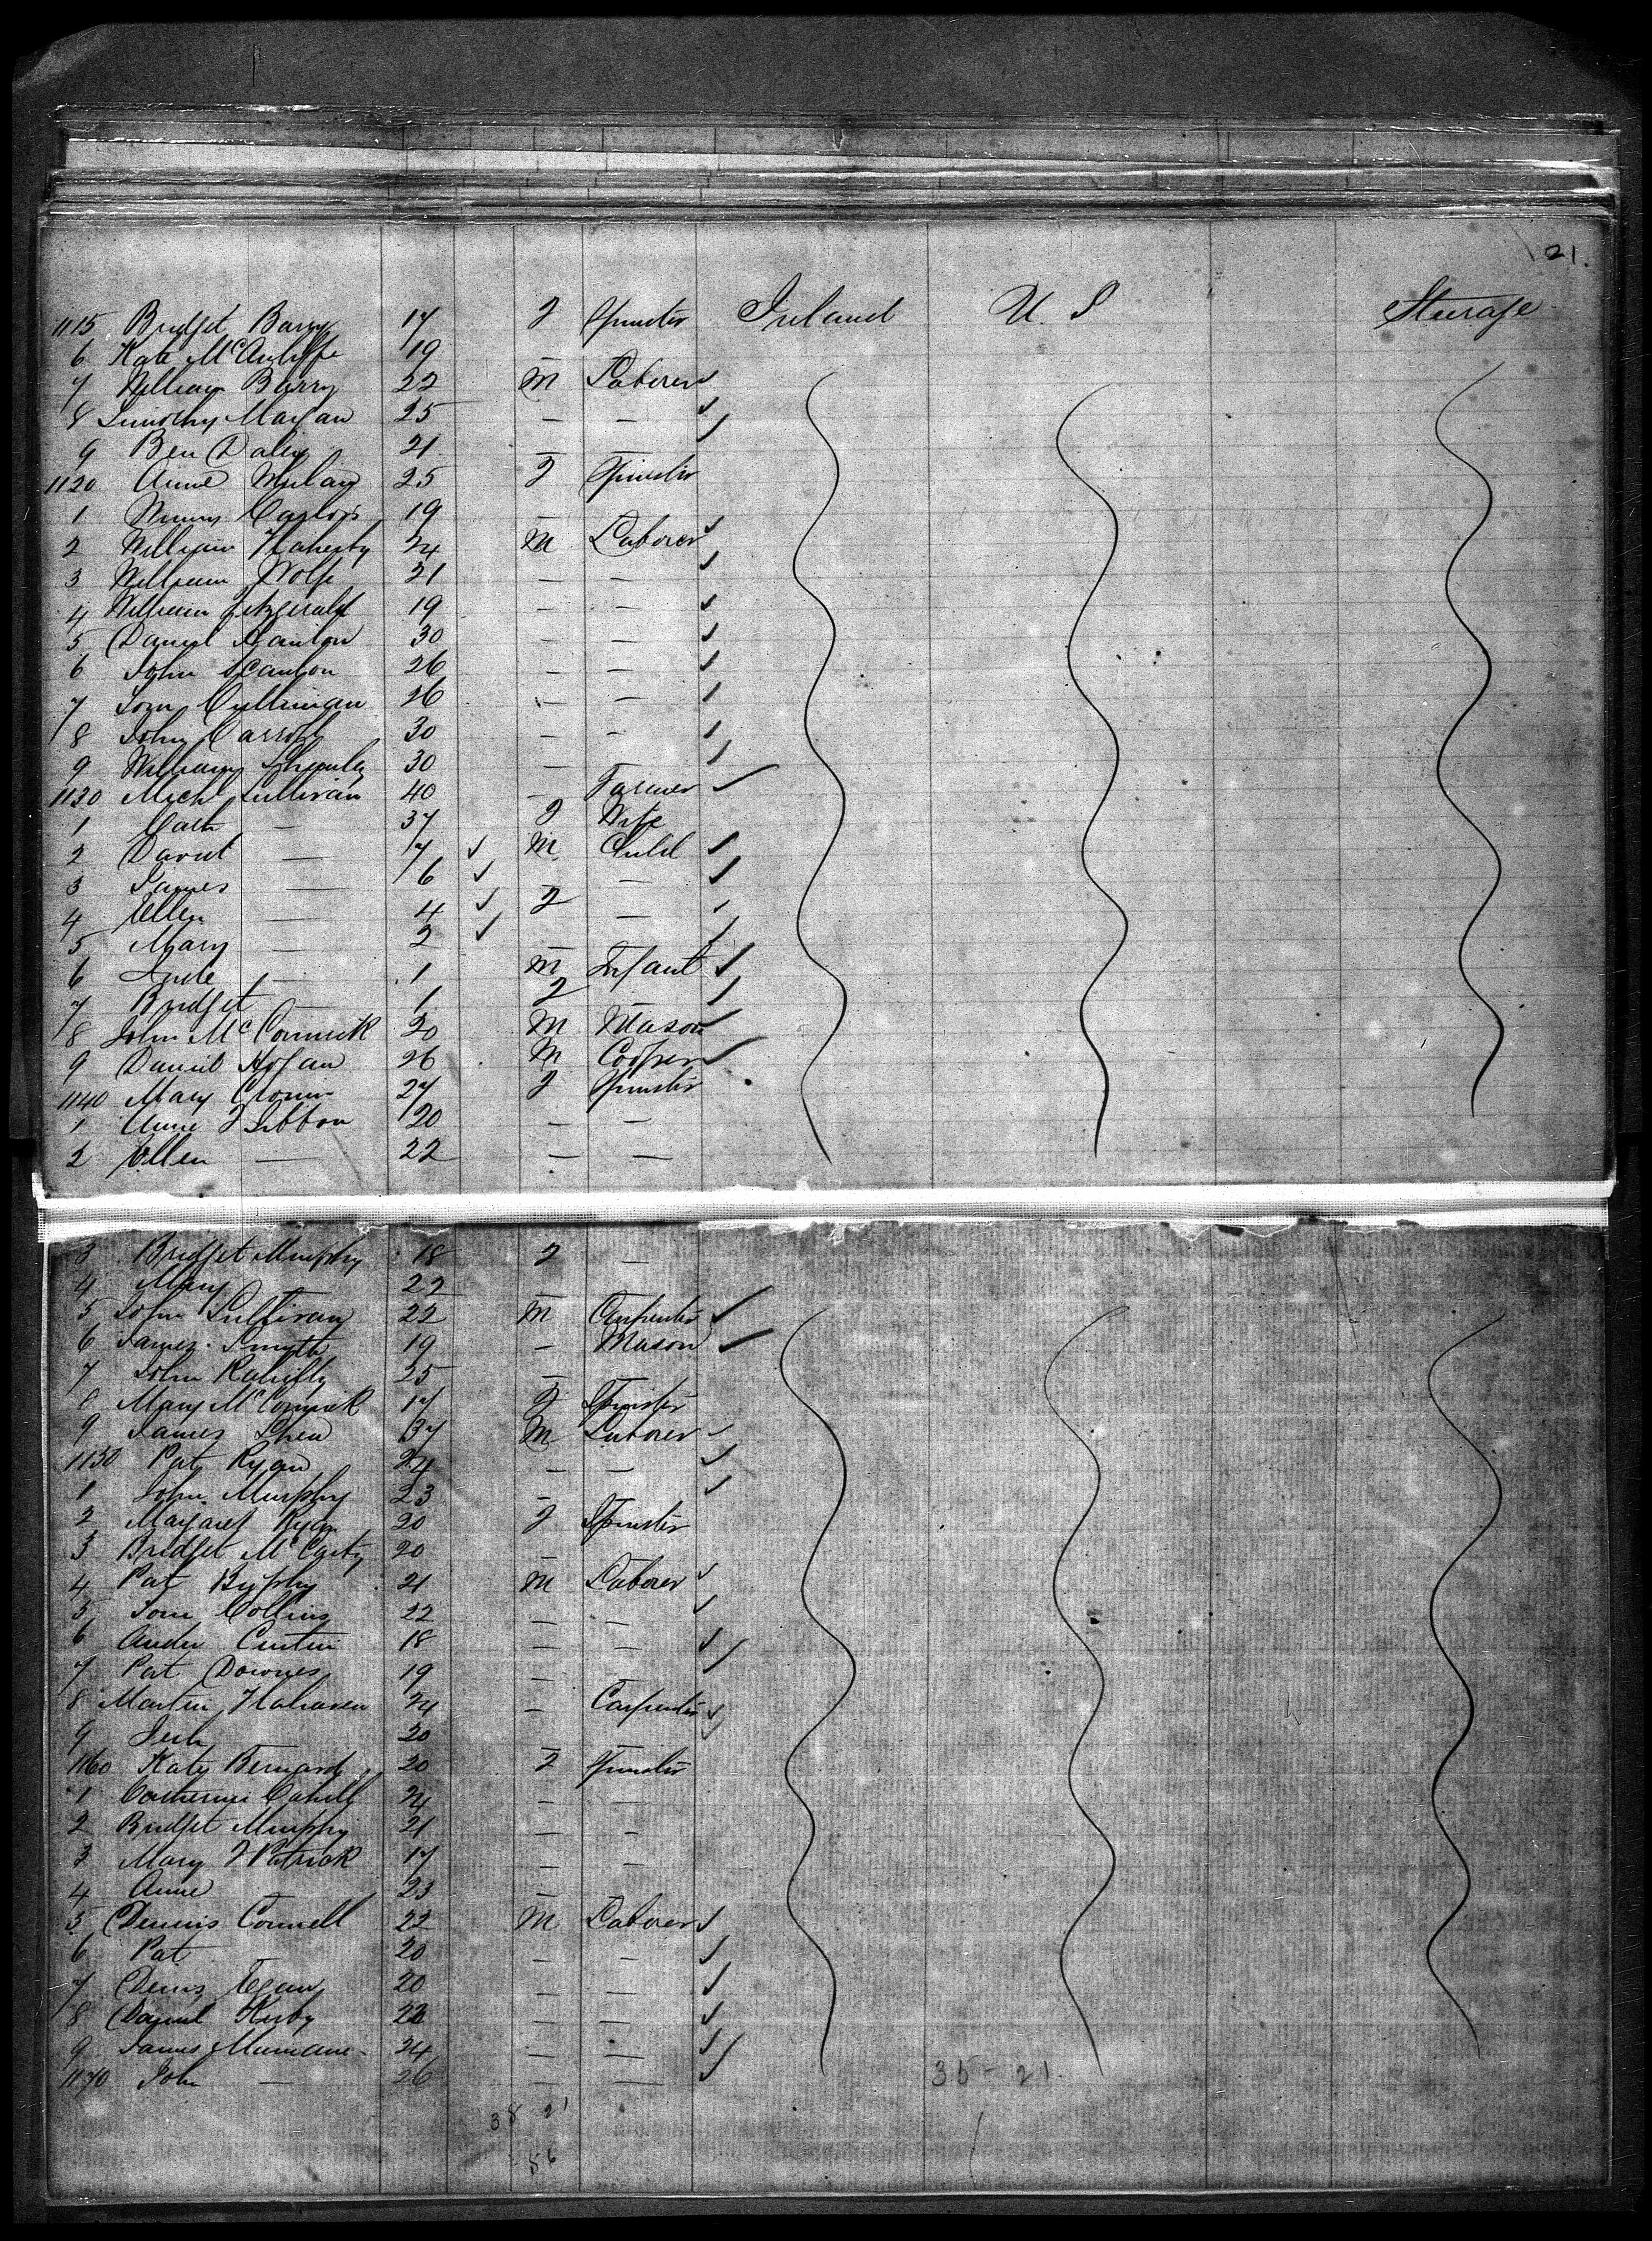 21.
1115 Bridget Barry 17 F Spinster Ireland U. S Steerage
6 Kate McAuliffe 19 —
7 William Barry 22 M Laborer
8 Timothy 25 — —
9 Ben Daly 21 —
1120 Anne 25 F Spinster
1 19 —
2 William Flaherty 24 M Laborer
3 William Wolfe 21 — —
4 William Fitzgerald 19 — —
5 Daniel Scanlon 30 — —
6 John Scanlon 26 — —
7 Tom Cullinan 26 — —
8 John Carroll 30 — —
9 William 30 —
1130 Mich Sullivan 40 — Farmer
1 Cath — 37 F Wife
2 David — 7 M Child
3 James — 6 — —
4 Ellen — 4 F —
5 Mary — 2 —
6 — 1 M Infant
7 Bridget — 1 F
8 John McCormick 20 M Mason
9 Daniel Hogan 26 M Cooper
1140 Mary Cronin 27 F Spinster
1 Anne FGibbon 20 — —
2 Ellen — 22 — —
3 Bridget Murphy 18 F —
4 Mary 22
5 John Sullivan 22 M Carpenter
6 James Smyth 19 — Mason
7 John Rahilly 25 —
8 Mary McCormick 17 F Spinster
9 James Shea 37 M Laborer
1150 Pat Ryan 24 — —
1 John Murphy 23 —
2 Margaret Ryan 20 F Spinster
3 Bridget McCarty 20
4 Pat 21 M Laborer
5 Tom Collins 22 — —
6 Andw Curtin 18 — —
7 Pat Downes 19 —
8 Martin 24 — Carpenter
9 20
1160 Katy Bernard 20 F Spinster
1 Catherine Cahill 24 — —
2 Bridget Murphy 21 — —
3 Mary FPatrick 17 — —
4 Anne 23 —
5 Dennis Connell 22 M Laborer
6 Pat 20 — —
7 Denis Egan 20 — —
8 Daniel Kirby 22 — —
9 James Murnane 24 — —
1170 John — 26 — —
35-21
38 21
56